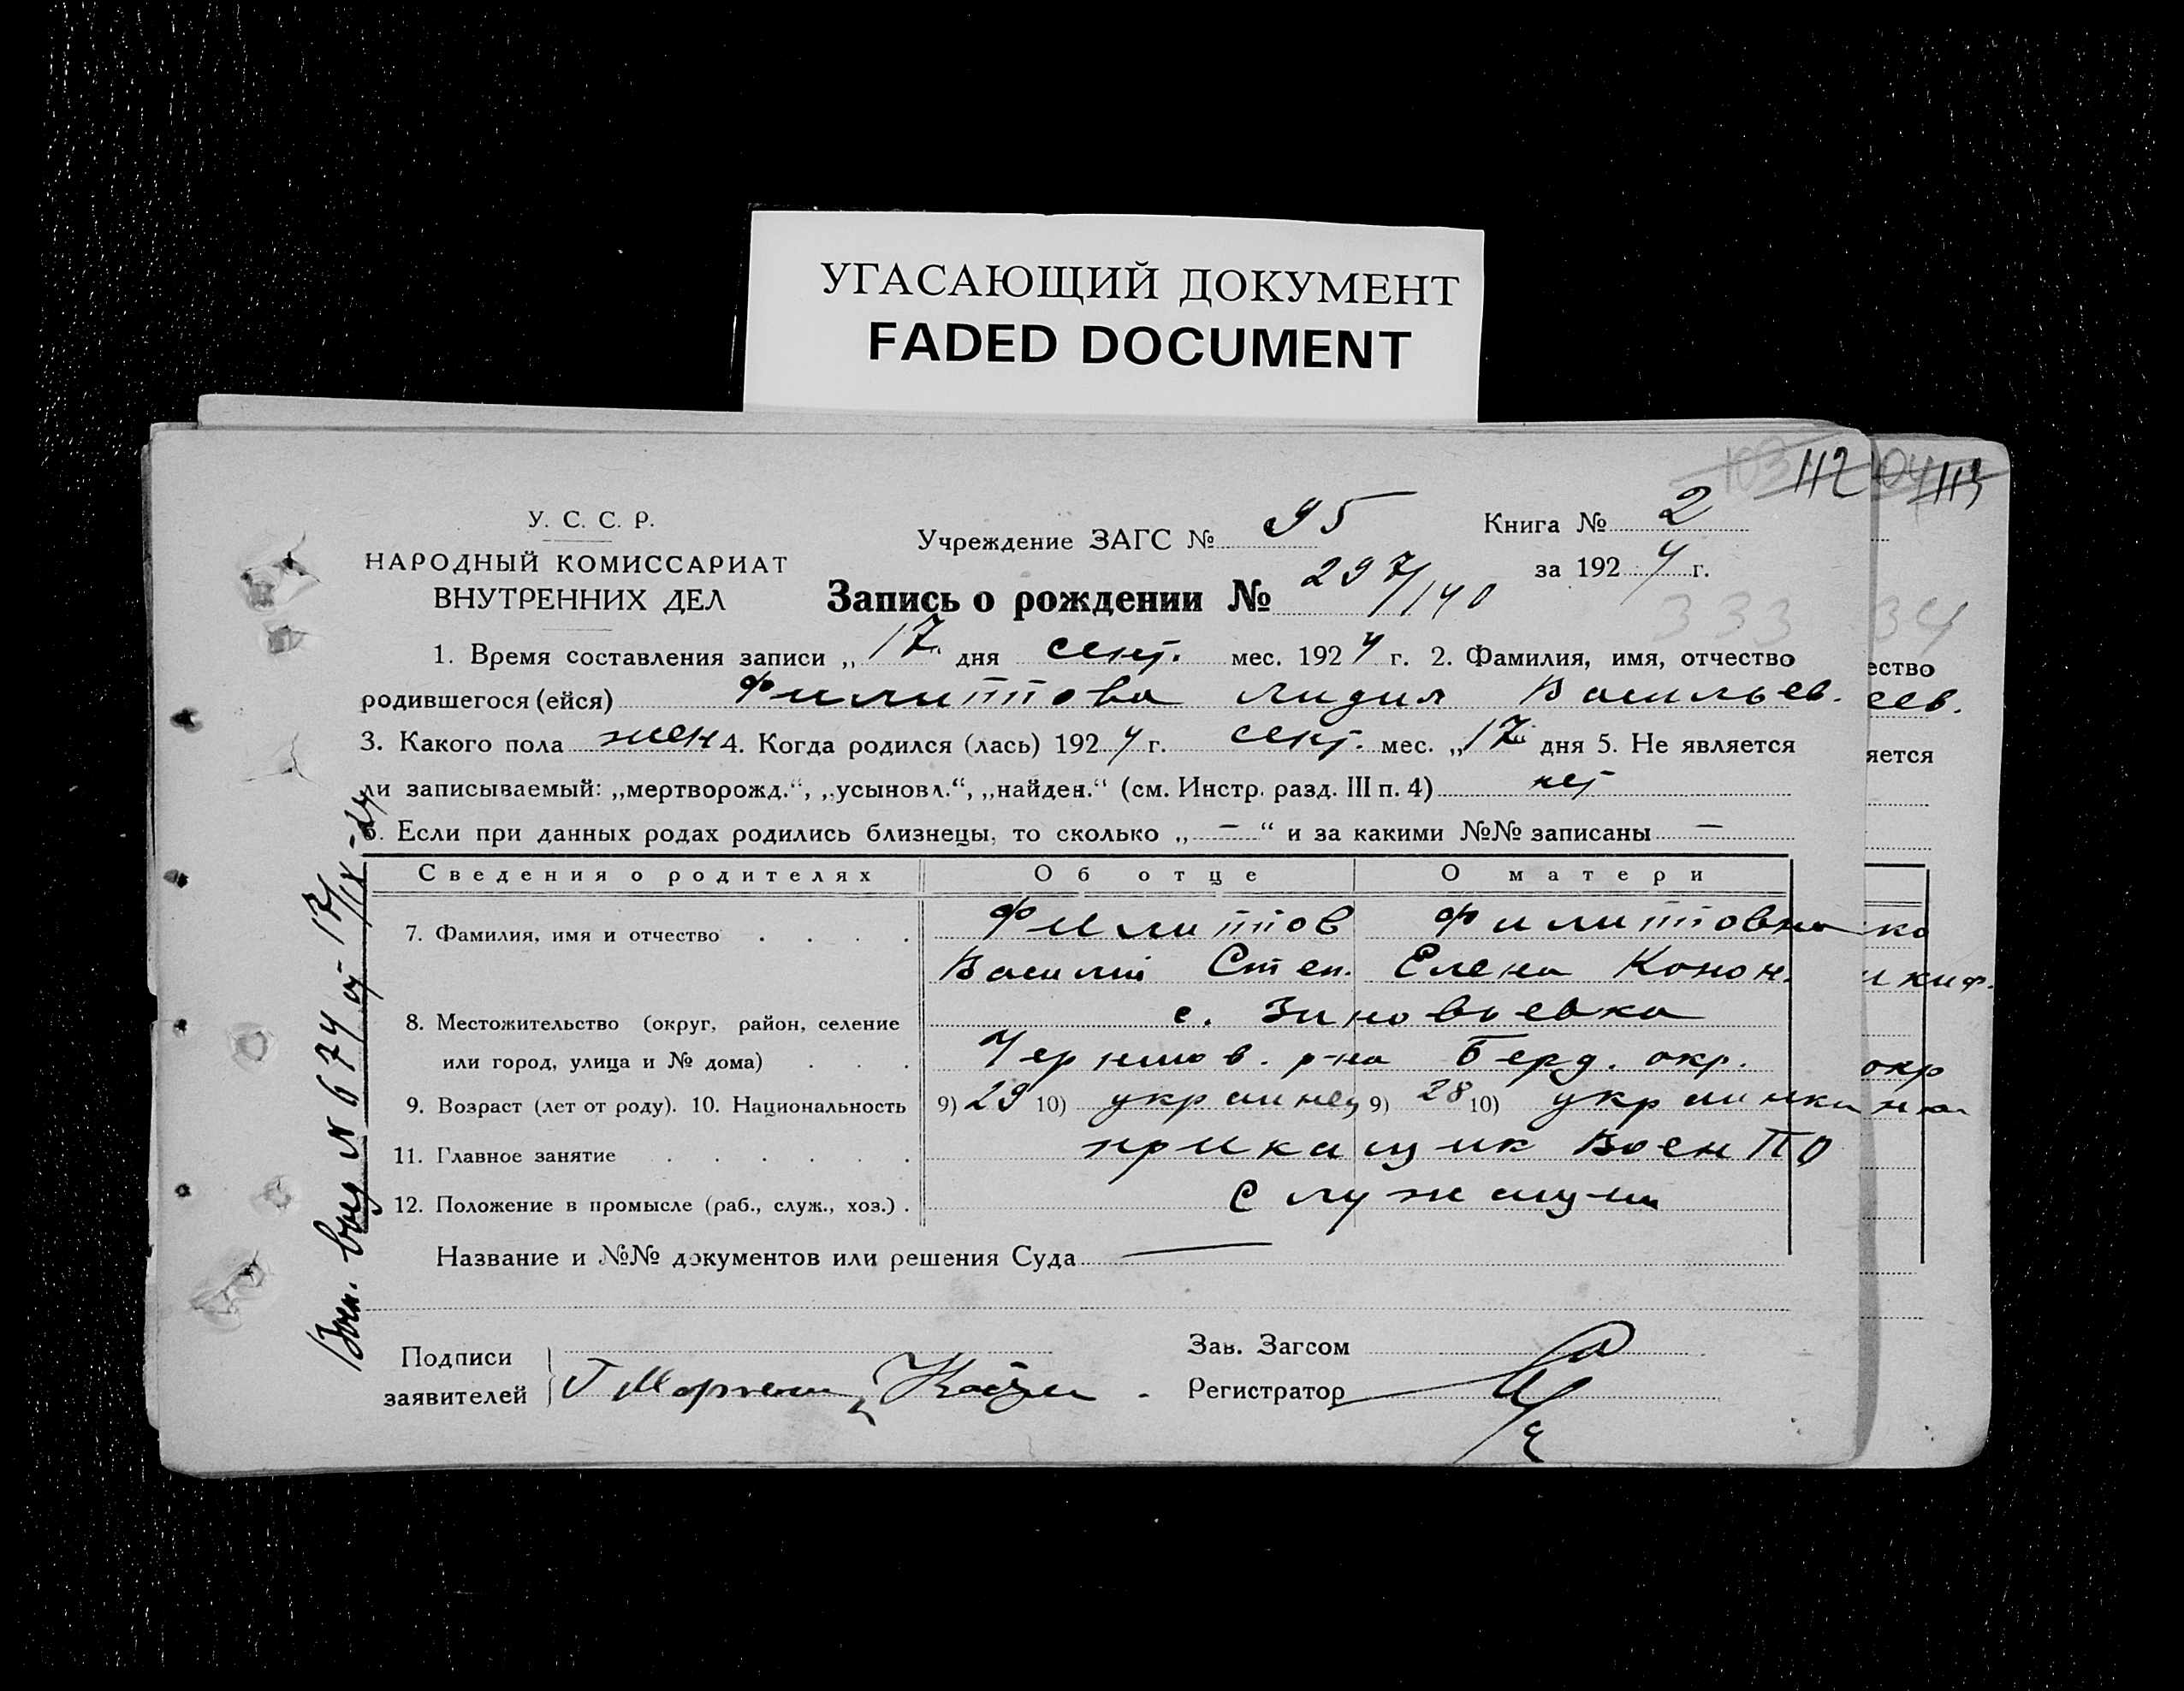 УГАСАЮЩИЙ ДОКУМЕНТ
FADED DOCUMENT
103 112 104 113
У. С. С. Р.
НАРОДНЫЙ КОМИССАРИАТ
ВНУТРЕННИХ ДЕЛ
Учреждение ЗАГС № 95
Книга № 2
за 1924 г.
Запись о рождении № 297/140
333 34
1. Время составления записи „17" дня сент. мес. 1924 г. 2. Фамилия, имя, отчество
родившегося (ейся) Филиппова Лидия Васильев.
3. Какого пола жен 4. Когда родился (лась) 1924 г. сент. мес. „17" дня 5. Не является
ли записываемый: „мертворожд.“, „усыновл.“, „найден.“ (см. Инстр. разд. III п. 4) нет
6. Если при данных родах родились близнецы, то сколько „ — “ и за какими №№ записаны —
Сведения о родителях Об отце О матери
7. Фамилия, имя и отчество . . . . Филиппов Филипповна
Василий Степ. Елена Конон.
8. Местожительство (округ, район, селение с. Зиновьевка
или город, улица и № дома) . . . р-на Берд. окр.
9. Возраст (лет от роду). 10. Национальность 9) 29 10) украинец 9) 28 10) украинка
11. Главное занятие . . . . . . прикащик ВоенПО
12. Положение в промысле (раб., служ., хоз.) . служащий
Название и №№ документов или решения Суда —
Подписи
заявителей
Зав. Загсом
Регистратор
№ 674 от 17/IX-24
ество
еев.
яется
ка
окр